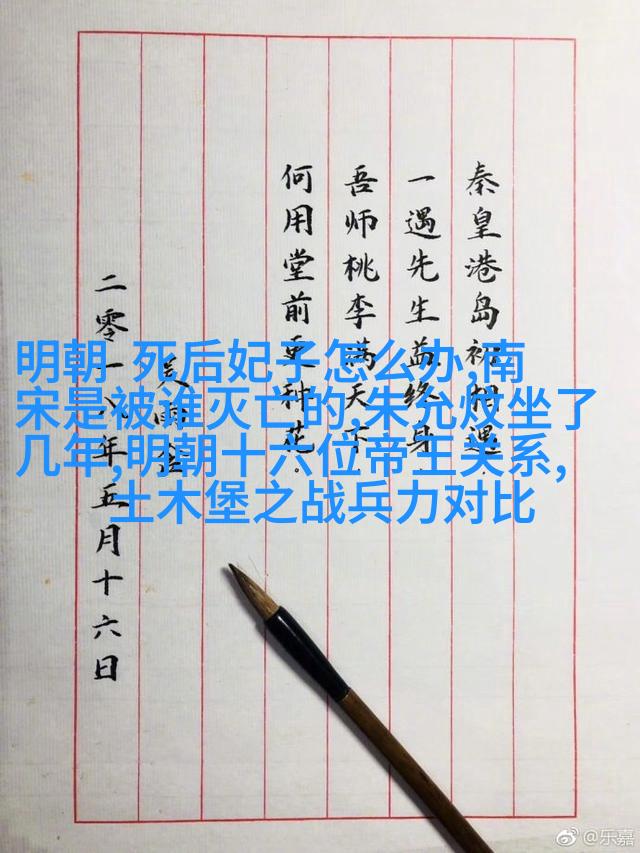 秦皇港岛初相遇
一遇先生益终身
吾师桃李满天下
何用堂前更种花。
二零一八年五月十六日
明朝 死后妃子怎么办,南
宋是被谁灭亡的,朱允炆坐了
几年,明朝十六位帝王关系,
土木堡之战兵力对比
@乐嘉